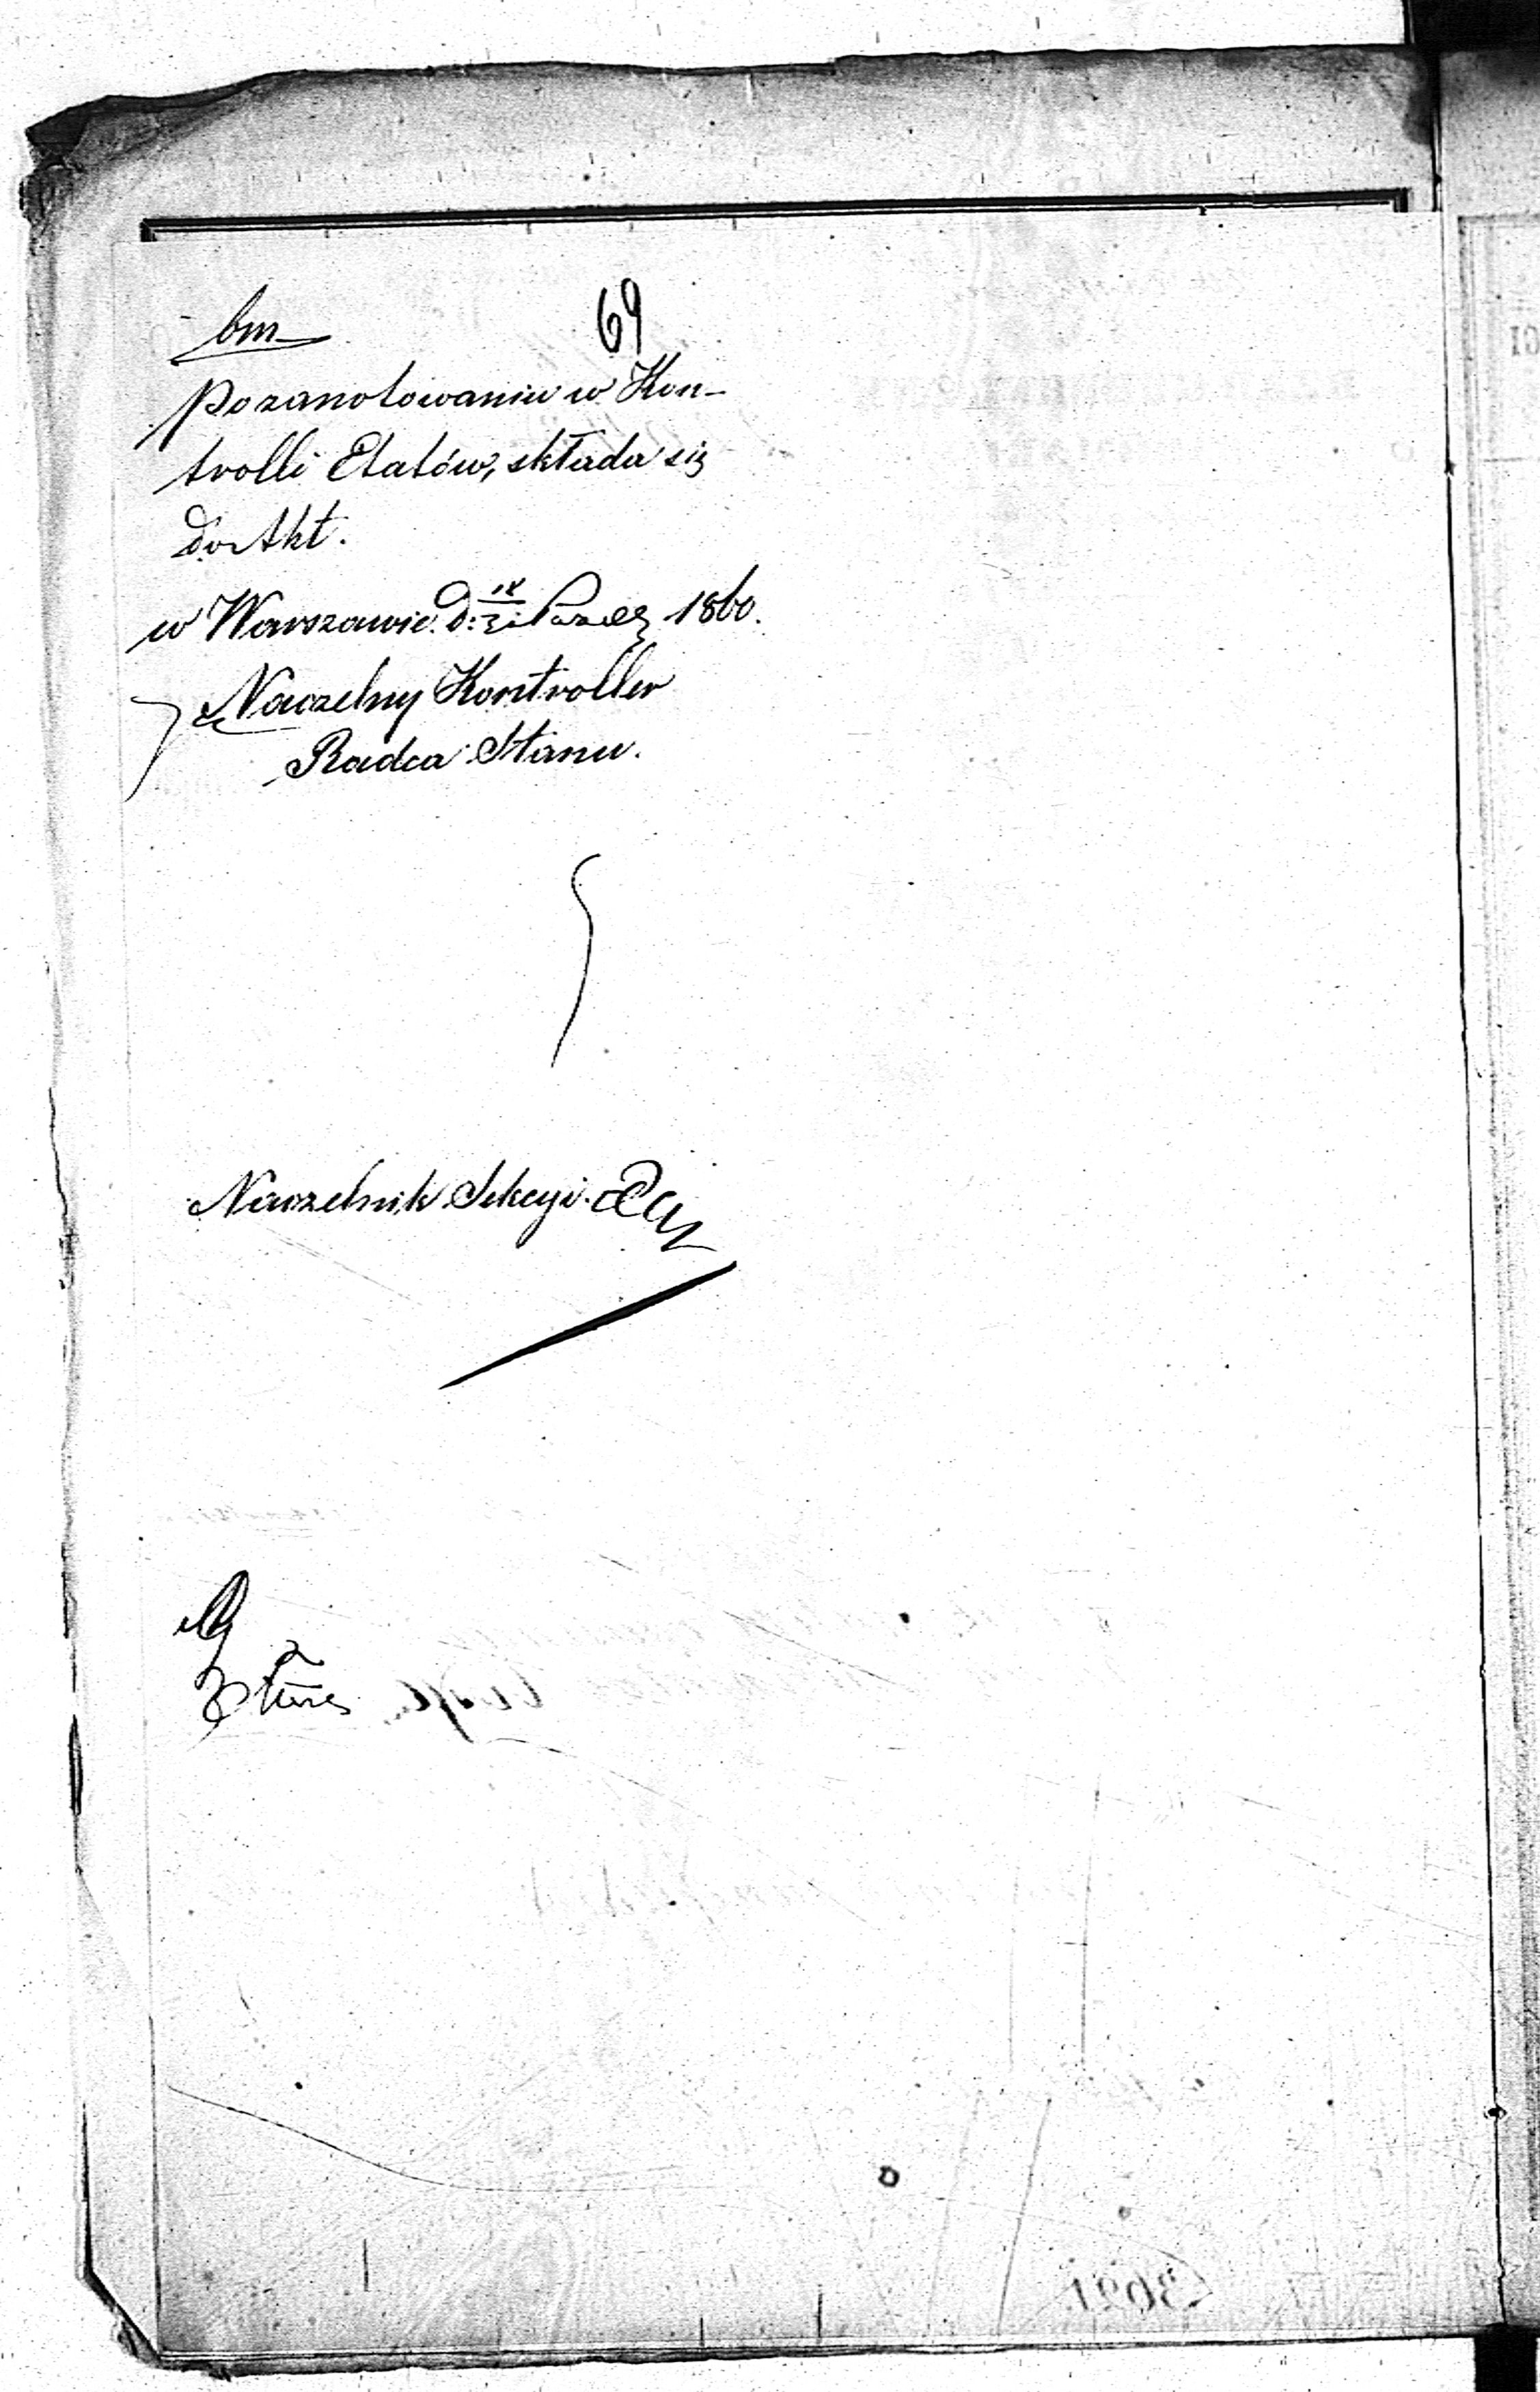 bm
69
Po zanotowaniu w Kon-
trolli Etatów, składa się
do Akt.
w Warszawie d: 1860.
Naczelny Kontroller
Radca Stanu.
Naczelnik Sekcyi